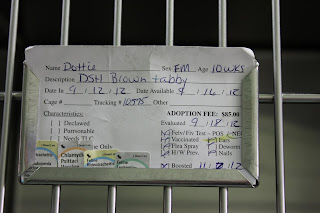 Name Dottie Sex FM Age 10wks
Description DSH Brown tabby
Date In 9.12.12 Date Available 9.16.12
Cage # Tracking # Other
ADOPTION FEE: $85.00
Characteristics: Evaluated 9.18.12
Declawed Felv/Fiv Test - POS
Purrsonable Vaccinated Ears
Needs TLC Flea Spray Deworm
e Only H/W Prev. Nails
Boosted
Chlamydia
Psittaci